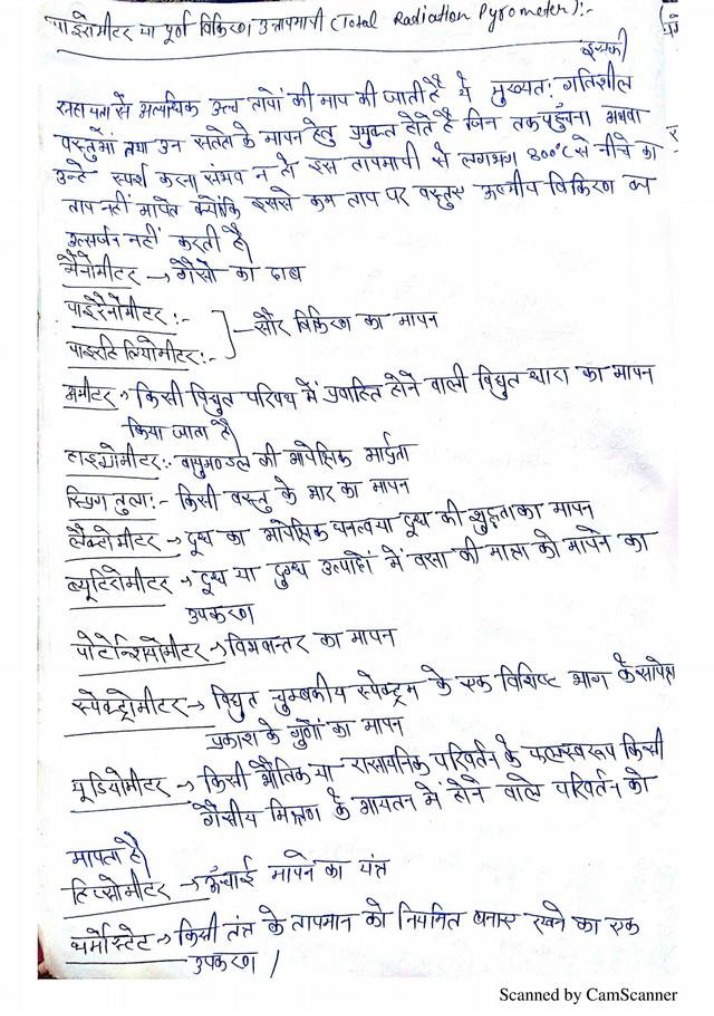 पाइरोमीटर या पूर्ण विकिरण उत्तापमापी (Total Radiation Pyrometer):-
इसकी
सहायता से अत्यधिक उच्च तापों की माप की जाती है ये मुख्यतः गतिशील
वस्तुओं तथा उन सतहों के मापन हेतु प्रयुक्त होते है जिन तक पहुँचना अथवा
उन्हे स्पर्श करना संभव न हो इस तापमापी से लगभग 800°C से नीचे का
ताप नहीं मापते क्योंकि इससे कम ताप पर वस्तुएं ऊष्मीय विकिरण का
उत्सर्जन नहीं करती है।
मैनोमीटर → गैसों का दाब
पाइरैनोमीटर :-
सौर विकिरण का मापन
पाइरहिलियोमीटर:-
अमीटर → किसी विद्युत परिपथ में प्रवाहित होने वाली विद्युत धारा का मापन
किया जाता है
हाइग्रोमीटर:- वायुमण्डल की आपेक्षिक आर्द्रता
स्प्रिंग तुला:- किसी वस्तु के भार का मापन
लैक्टोमीटर → दूध का आपेक्षिक घनत्व या दूध की शुद्धता का मापन
ब्यूटिरोमीटर → दूध या दुग्ध उत्पादों में वसा की मात्रा को मापने का
उपकरण
पोटेन्शियोमीटर → विभवान्तर का मापन
स्पेक्ट्रोमीटर → विद्युत चुम्बकीय स्पेक्ट्रम के एक विशिष्ट भाग के सापेक्ष
प्रकाश के गुणों का मापन
यूडियोमीटर → किसी भौतिक या रासायनिक परिवर्तन के फलस्वरूप किसी
गैसीय मिश्रण के आयतन में होने वाले परिवर्तन को
मापता है।
हिप्सोमीटर → ऊँचाई मापने का यंत्र
थर्मोस्टेट → किसी तंत्र के तापमान को नियमित बनाए रखने का एक
उपकरण /
Scanned by CamScanner